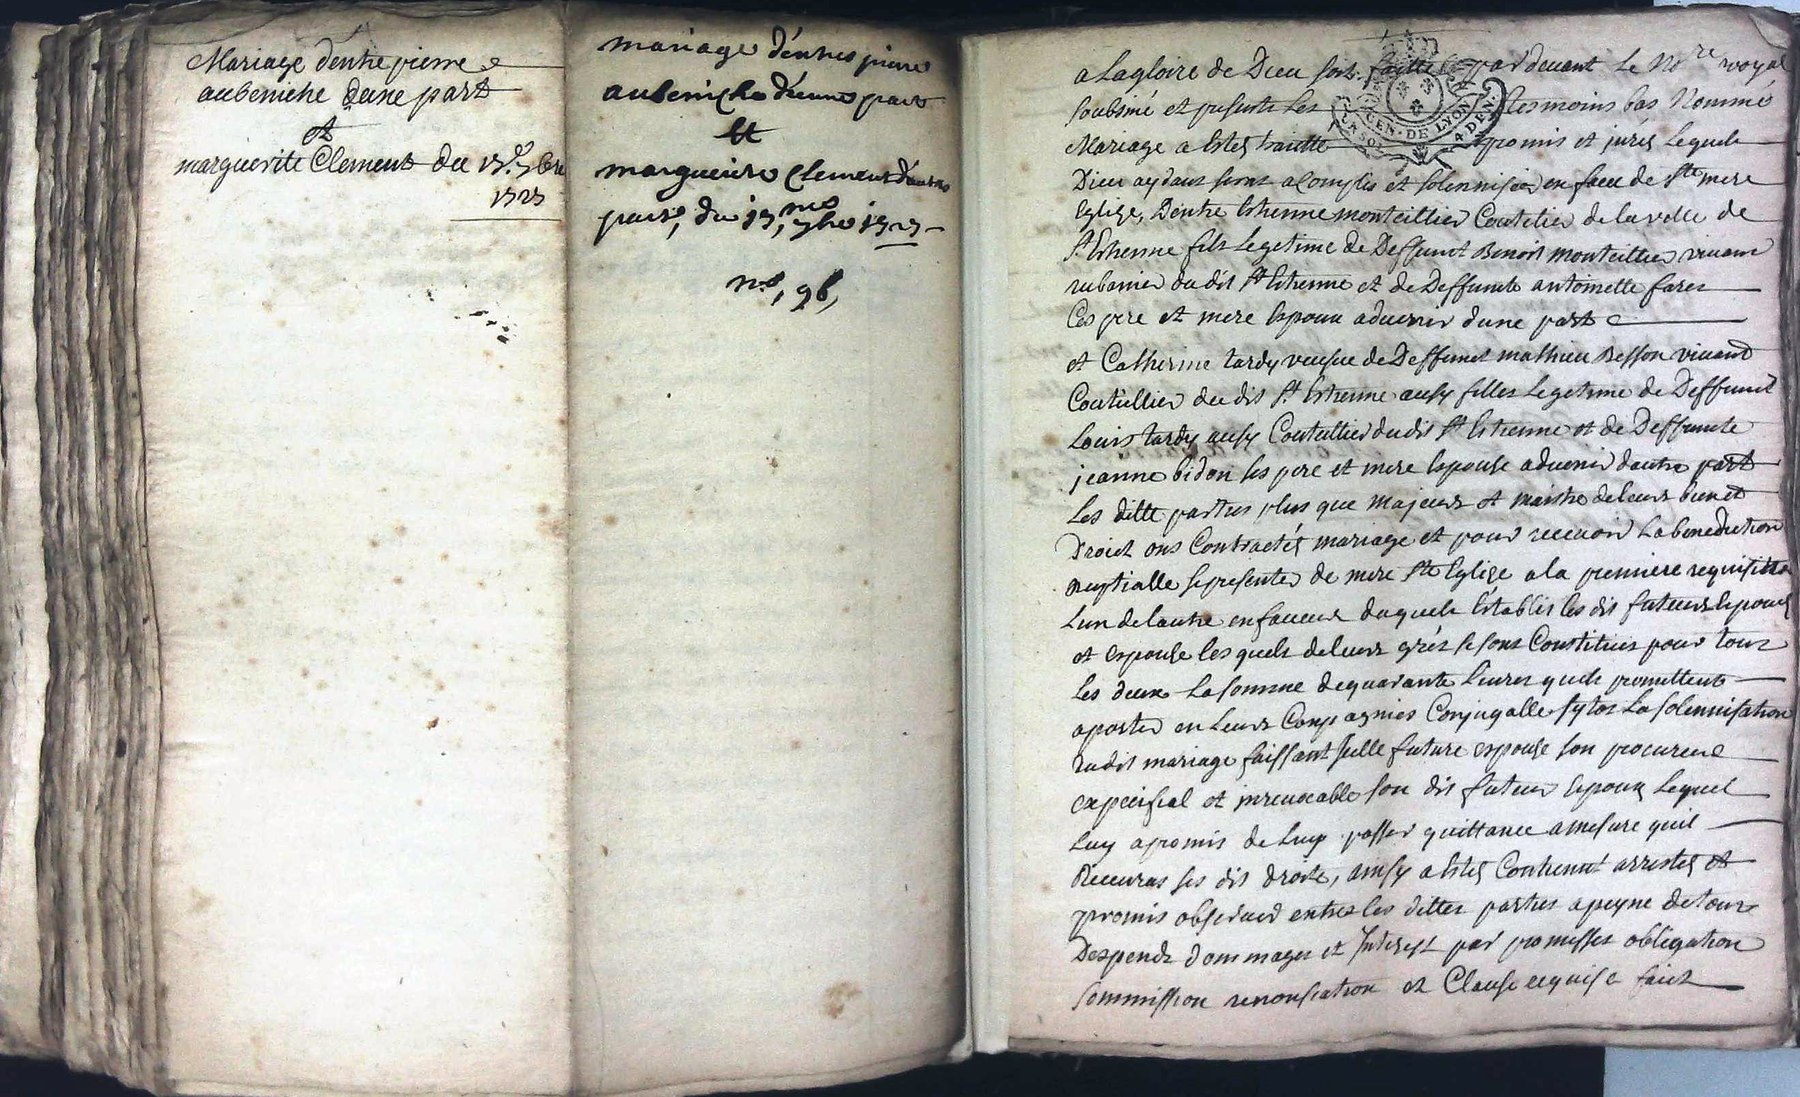 Mariage d'entre pierre
aubeniche dune part
Et
marguerite Clement du 15.e 7bre
1723
mariage d'entres pierre
aubeniche d'unne part
Et
margueritte Clement d'autres
part, du 15,me 7bre 1723
no, 96,
a La gloire de Dieu soit faytte par devant Le Nre royal
soubsiné et presents Les tesmoins bas Nommé
Mariage a Estes traitté promis et jurés Lequel
Dieu aydant seront acomplis et solennisées en face de Ste mere
Eglize, Dentre Estienne monteillier Coutelier de la ville de
St Estienne fils Legetime de Deffunct Benoit monteillier vivant
rubanier du dit St Estienne et de Deffuncte antoinette fares
Ces pere et mere Epoux advenir dune part
et Catherine tardy veufue de Deffunct mathieu Besson vivant
Coutellier du dit St Estienne ausy filles Legetime de Deffunct
Louis tardy ausy Coutellier du dit St Estienne et de Deffuncte
jeanne bidon ses pere et mere Espouse advenir dautre part
Les ditte parties plus que majeurs et maistre de leurs bien et
Droict ons Contractés mariage et pour recevoir La benediction
nuptialle se presenter de mere Ste Eglize a la premiere requisition
Lun de lautre en faveur duquels Establis les dis futeurs Epoux
et espouse les quels de leurs grés se sont Constitues pour tous
Les deux La somme de quarante Livres quels promettent
aporter en Leurs Compagnies Conjugalle sytos La solennisation
dudit mariage faissant stelle future espouse son procureur
expecisial et inrevocable son dit futeur Epoux Lequel
Luy a promis de Luy passer quittance a mesure quil
Recevras ses dis droits, ainsy a Estes Contenut arrestes et
promis observer entre les dittes parties a peyne de tous
Despends dommages et Interest par promisses obligation
sommission renonsiation et Clause requise faict